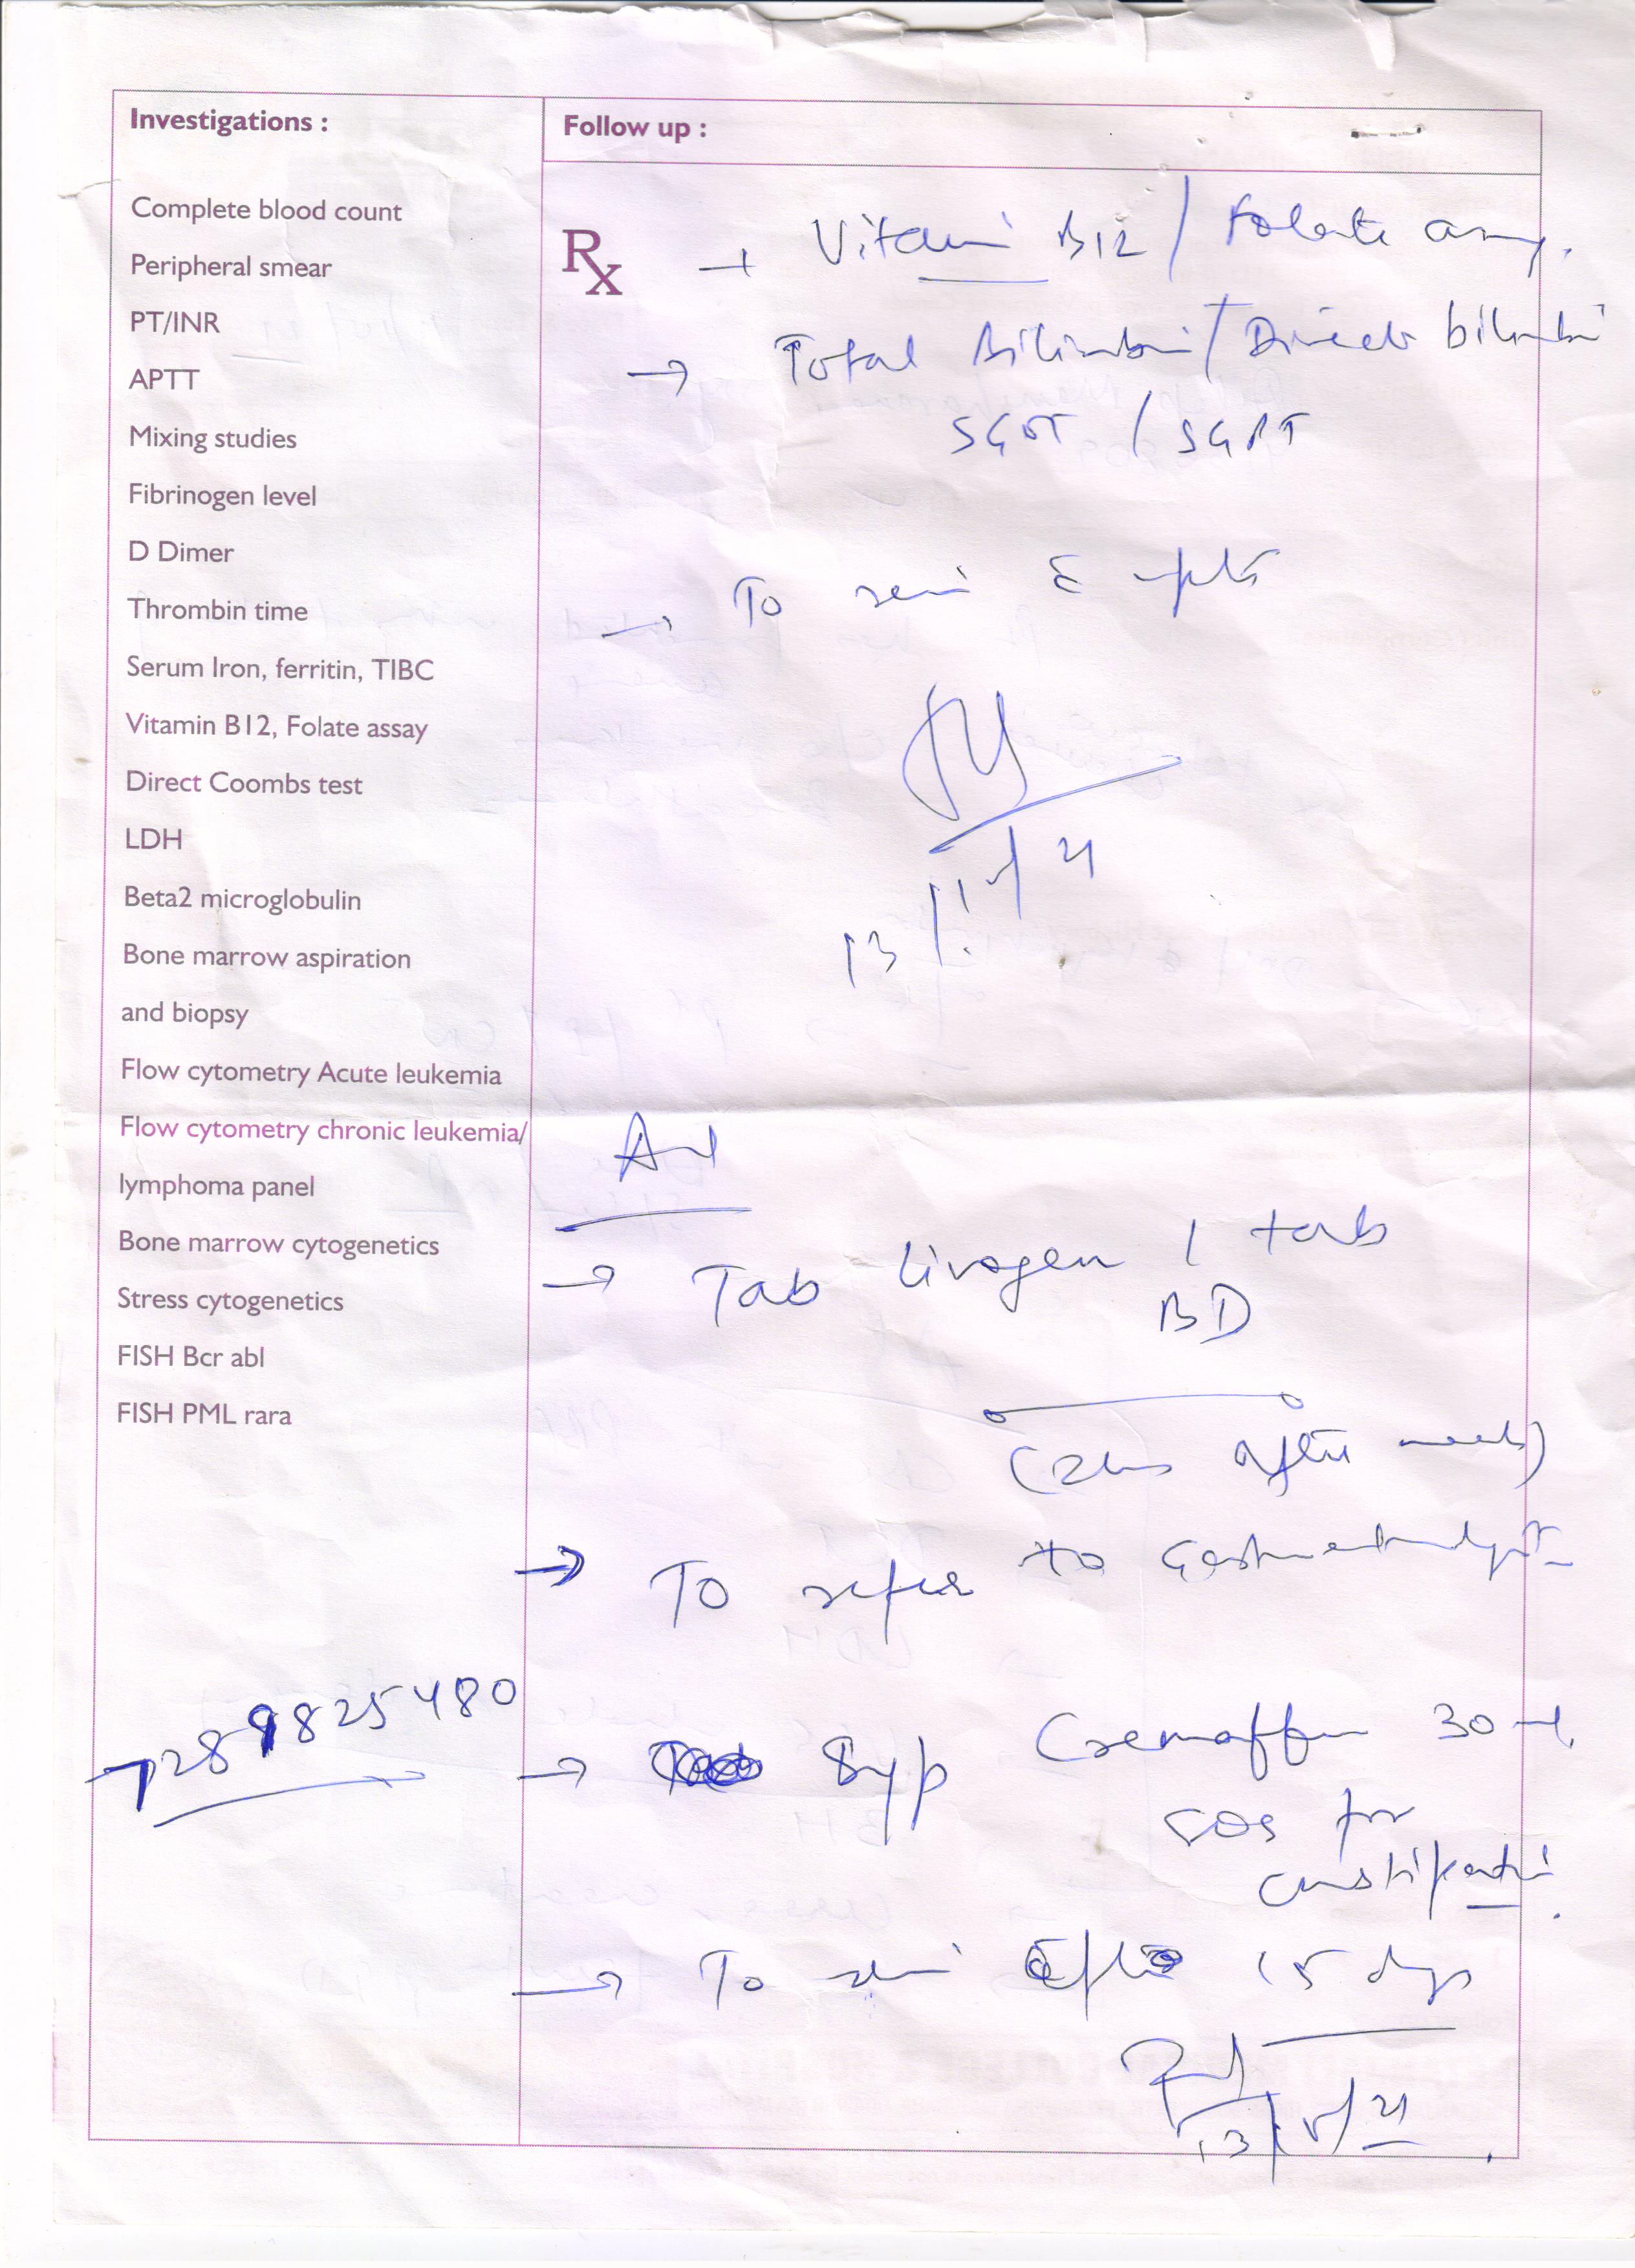 Investigations :
Complete blood count
Peripheral smear
PT/INR
APTT
Mixing studies
Fibrinogen level
D Dimer
Thrombin time
Serum Iron, ferritin, TIBC
Vitamin B12, Folate assay
Direct Coombs test
LDH
Beta2 microglobulin
Bone marrow aspiration
and biopsy
Flow cytometry Acute leukemia
Flow cytometry chronic leukemia/
lymphoma panel
Bone marrow cytogenetics
Stress cytogenetics
FISH Bcr abl
FISH PML rara
7289825480
Follow up :
Rx → Vitamin B12 / Folate assay.
→ Total Bilirubin / Direct bilirubin
SGOT / SGPT
→ To
13/
21
→ Tab Livogen 1 tab
BD
(2hrs after meals)
→ To refer to Gastroenterologist
→ Syp Cremaffin 30 ml
SOS for
constipation.
→ To after 15 days
13/ /21